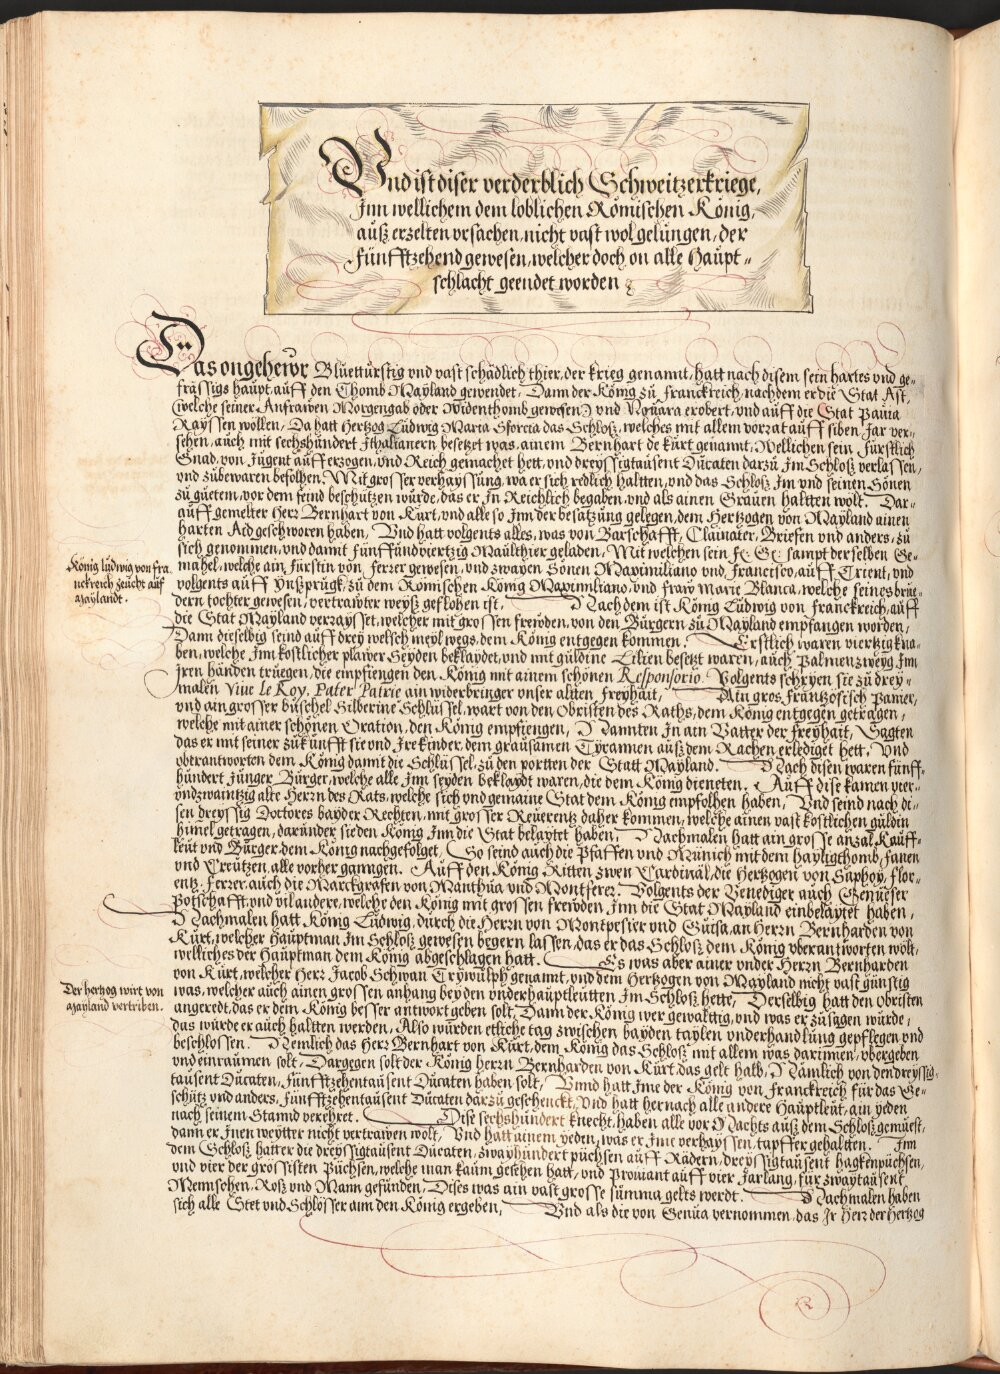 Und ist diser verderblich Schweitzerkriege,
Inn wellichem dem loblichen Römischen König,
auß erzelten vrsachen, nicht vast wol gelungen, der
Fünfftzehend gewesen, welcher doch on alle Haupt-
schlacht geendet worden
Das ongehewr Bluettürstig vnd vast schädlich thier, der krieg genannt, hatt nach disem sein hartes vnd ge-
frässigs haupt, auff den Thomb Mayland gewendet, Dann der König zu Franckreich, nachdem er die Stat Ast,
(welche seiner Anfrawen Morgengab oder Widenthomb gewesen) vnd Nouara erobert, vnd auff die Stat Pauia
Rayssen wöllen, Da hatt Hertzog Ludwig Maria Sforcia das Schloß, welches mit allem vorrat auff siben Jar ver-
sehen, auch mit sechshundert Ithalianern besetzt was, ainem Bernhart de kurt genannt, Wellichen sein Fürstlich
Gnad, von Jugent auff erzogen, vnd Reich gemachet hett, vnd dreyssigtausent Ducaten darzu Im Schloß verlassen,
vnd zübewaren befolhen, Mit grosser verhayssung, wa er sich redlich haltten, vnd das Schloß Im vnd seinen Sönen
zu guetem, vor dem feind beschützen wurde, das er In Reichlich begaben, vnd als ainen Grauen haltten wölt. Dar-
auff gemelter Herr Bernhart von Kurt, vnd alle so Inn der besatzung gelegen, dem Hertzogen von Mayland ainen
harten Aid geschworen haben, Vnd hatt volgents alles, was von Barschafft, Clainater, Briefen vnd anders, zu
sich genommen, vnd damit fünffundviertzig Maulthier geladen, Mit welchen sein F: G: sampt derselben Ge-
mahel, welche ain Fürstin von Ferzer gewesen, vnd zwayen Sönen Maximiliano vnd Francisco, auff Trient, vnd
volgents auff Ynßprugk, zu dem Römischen König Maximiliano, vnd fraw Marie Blanca, welche seines brue-
dern tochter gewesen, vertrawter weyß geflohen ist, Nach dem ist König Ludwig von Franckreich, auff
die Stat Mayland verrayset, welcher mit grossen frewden, von den Bürgern zu Mayland empfangen worden,
Dann dieselbig seind auff drey welsch meyl wegs, dem König entgegen kommen. Erstlich waren viertzig kna-
ben, welche Inn kostlicher plawer Seyden beklaydet, vnd mit guldine Lilien besetzt waren, auch Palmenzweyg Inn
Iren händen truegen, die empfiengen den König mit ainem schönen Responsorio. Volgents schryen sie zu drey-
malen Viue le Roy, Pater Patrie ain widerbringer vnser altten freyhait, Ain gros Frantzösisch Panier,
vnd ain grosser büschel Silberine Schlüssel, wart von den Obristen des Raths, dem König entgegen getragen,
welche mit ainer schönen Oration, den König empfiengen, Nannten In ain Vatter der freyhait, Sagten
das er mit seiner zukunfft sie vnd Ire kinder, dem grausamen Tyrannen auß dem Rachen erlediget hett, Vnd
vberantworten dem König damit die Schlüssel, zu den portten der Statt Mayland. Nach disen waren fünff-
hundert Junger Bürger, welche alle Inn seyden beklaydt waren, die dem König dieneten. Auff dise kamen vier-
vndzwaintzig alte Herrn des Rats, welche sich vnd gemaine Stat dem König empfolhen haben, Vnd seind nach di-
sen dreyssig Doctores bayder Rechten, mit grosser Reuerentz daher kommen, welche ainen vast kostlichen guldin
himel getragen, darunder sie den König Inn die Stat belaytet haben, Nachmalen hatt ain grosse anzal Kauff-
leut vnd Bürger dem König nachgefolget, So seind auch die Pfaffen vnd Münich mit dem hayligthomb, Fanen
vnd Creutzen, alle vorher ganngen. Auff den König Ritten zwen Cardinäl, die Hertzogen von Saphoy, Flor-
entz, Ferzer, auch die Marckgrafen von Manthua vnd Montferer. Volgents der Venediger auch Genueser
Potschafft, vnd vil andere, welche den König mit grossen frewden Inn die Stat Mayland einbelaytet haben,
Nachmalen hatt König Ludwig, durch die Herrn von Montpesier vnd Guisa, an Herrn Bernharden von
Kurt, welcher Hauptman Im Schloß gewesen begern lassen, das er das Schloß dem König vberantworten wölt,
welliches der Hauptman dem König abgeschlagen hatt. Es was aber ainer vnder Herrn Bernharden
von Kurt, welcher Herr Jacob Schwan Trywulph genannt, vnd dem Hertzogen von Mayland nicht vast günstig
was, welcher auch ainen grossen anhang bey den vnderhauptleutten Im Schloß hette, Derselbig hatt den Obristen
angeredt, das er dem König besser antwort geben solt, Dann der König wer gewalttig, vnd was er zusagen wurde,
das wurde er auch haltten werden, Also wurden etliche tag zwischen bayden taylen vnderhandlung gepflegen vnd
beschlossen. Nemlich das Herr Bernhart von Kurt, dem König das Schloß mit allem was darinnen, vbergeben
vnd einraumen solt, Dargegen solt der König herrn Bernharden von Kurt, das gelt halb, Nämlich von den dreyssig-
tausent Ducaten, Fünfftzehentausent Ducaten haben solt, Vnnd hatt Ime der König von Franckreich für das Ge-
schütz vnd anders, Fünfftzehentausent Ducaten darzu geschenckt, Vnd hatt hernach alle andere Hauptleut, ain yeden
nach seinem Stannd verehret. Dise sechshundert knecht, haben alle vor Nachts auß dem Schloß gemüest,
dann er Inen weytter nicht vertrawen wolt, Vnd hatt ainem yeden, was er Ime verhayssen, tapffer gehaltten. Inn
dem Schloß hatt er die dreyssigtausent Ducaten, zwayhundert püchsen auff Rädern, dreyssigtausent hagkenpüchsen,
vnd vier der grössisten Püchsen, welche man kaum gesehen hatt, vnd Prouiant auff vier Jarlang, für zwaytausent
Mennschen, Roß vnd Mann gefunden, Dises was ain vast grosse summa gelts werdt. Nachmalen haben
sich alle Stet vnd Schlösser ann den König ergeben, Vnd als die von Genua vernommen, das Ir Herr der Hertzog
König Ludwig von Fra
nckreich zeücht auf
Maylandt.
Der hertzog wirt von
Mayland vertriben.